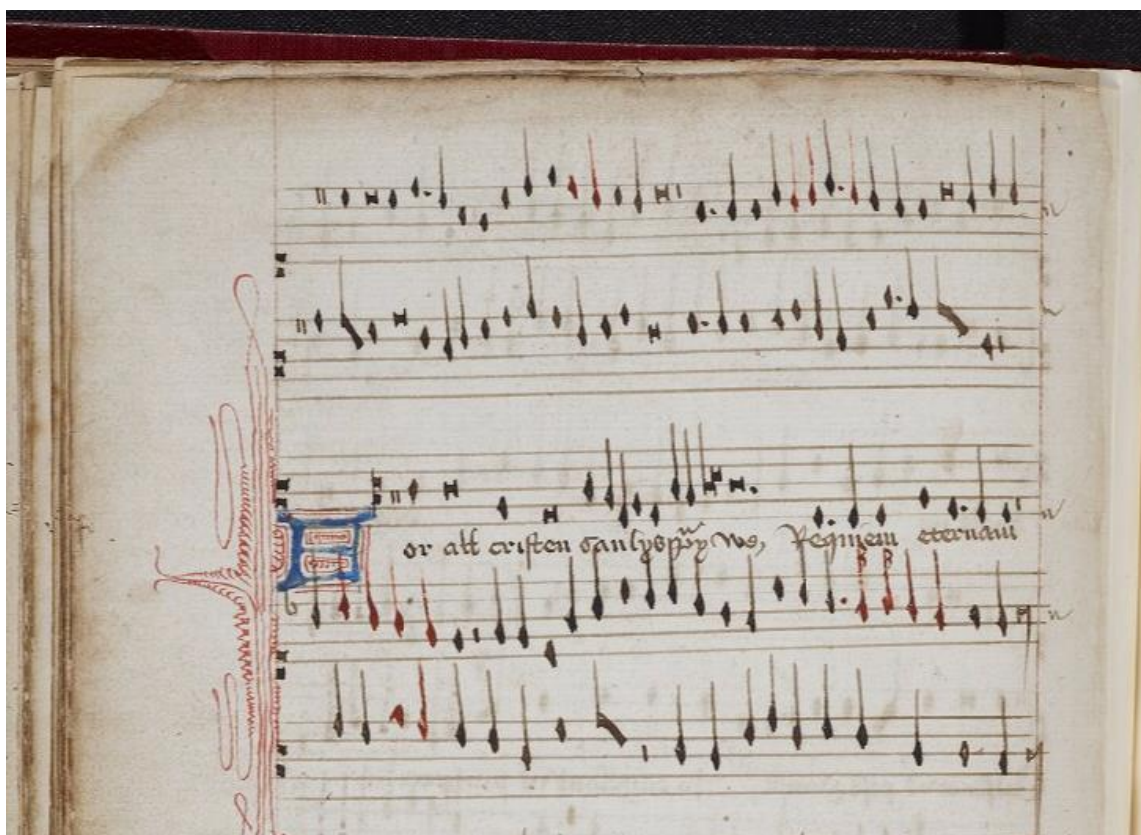 For all cristen saulys pᵃy we, Requiem eternam